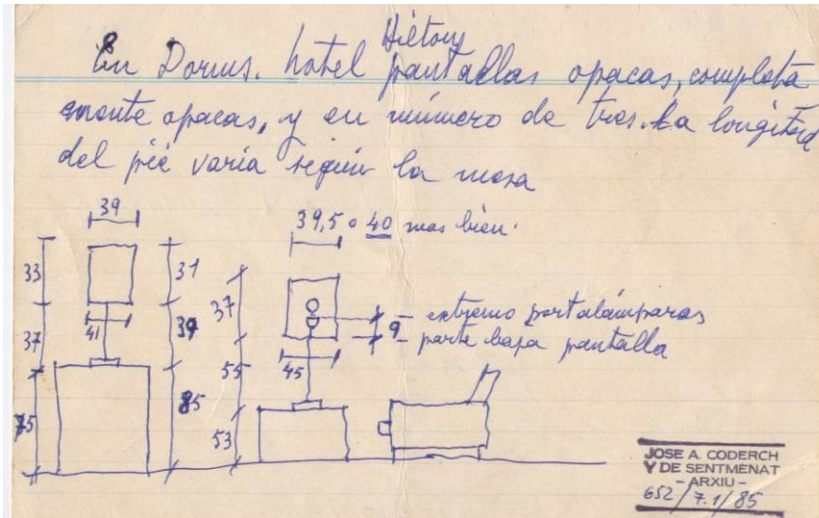 En Domus. hotel pantallas opacas, completa
mente opacas, y en número de tres. La longitud
del pié varia según la mesa
39
39,5 o 40 mas bien.
33
31
37
41
39
37
9
extremo portalámparas
parte baja pantalla
55
45
75
85
53
JOSE A. CODERCH
Y DE SENTMENAT
- ARXIU -
652/7.1/85